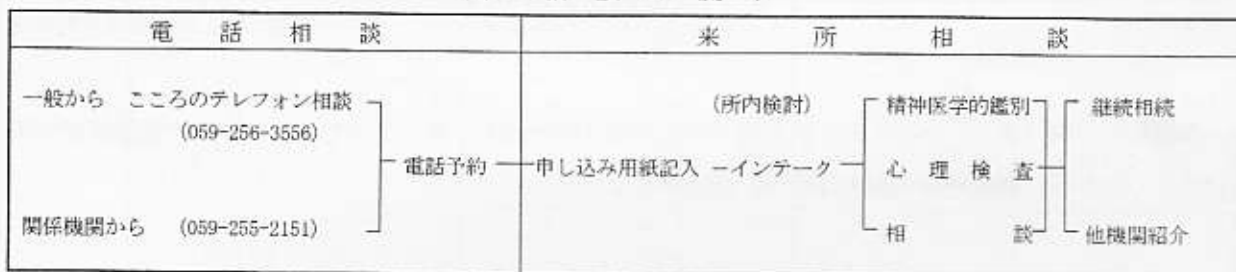 電話相談
来所相談
一般から こころのテレフォン相談
(059-256-3556)
関係機関から (059-255-2151)
電話予約
申し込み用紙記入 ーインテーク
(所内検討)
精神医学的鑑別
心理検査
相談
継続相続
他機関紹介